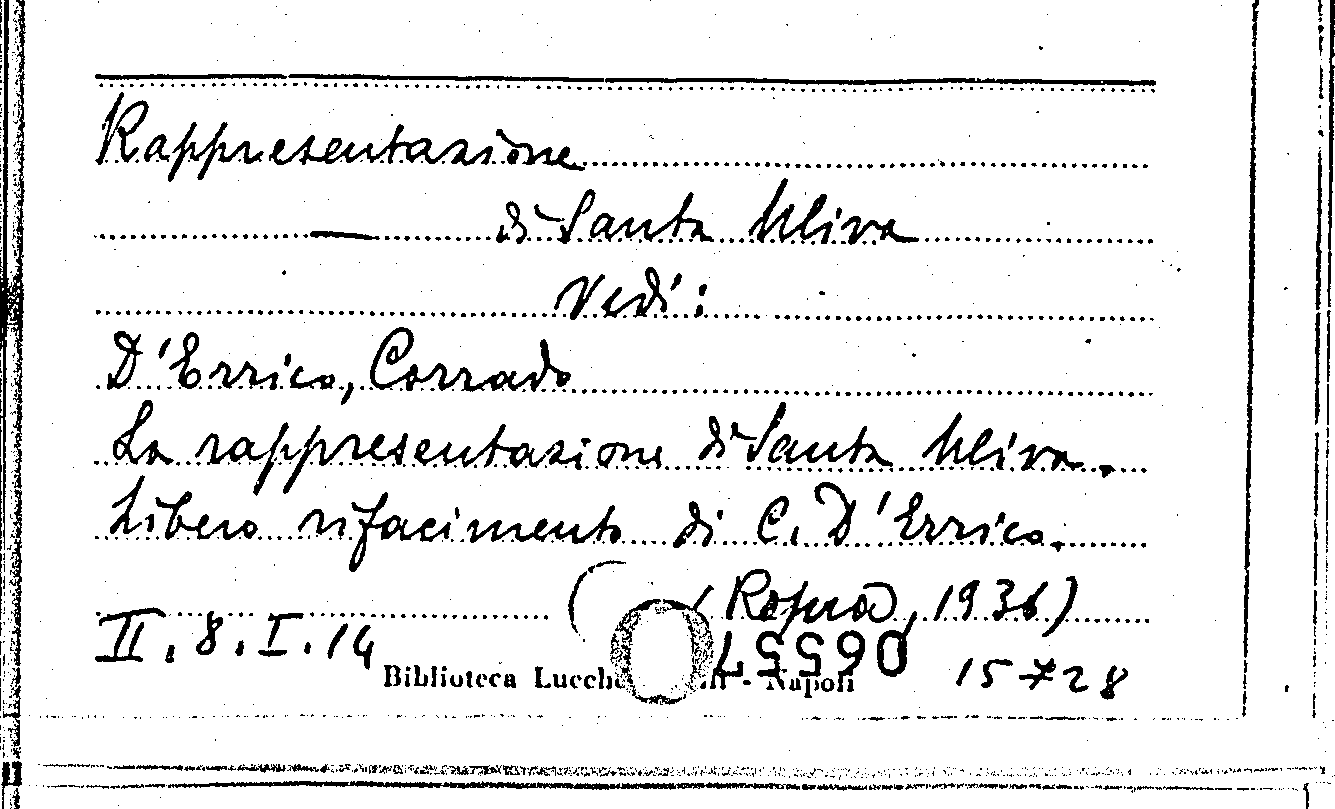 Rappresentazione
— di Santa Uliva
Vedi:
D'Errico, Corrado
La rappresentazione di Santa Uliva.
Libero rifacimento di C. D'Errico.
(Roma, 1936)
II. 8. I. 14
065557
Biblioteca - Napoli 15728